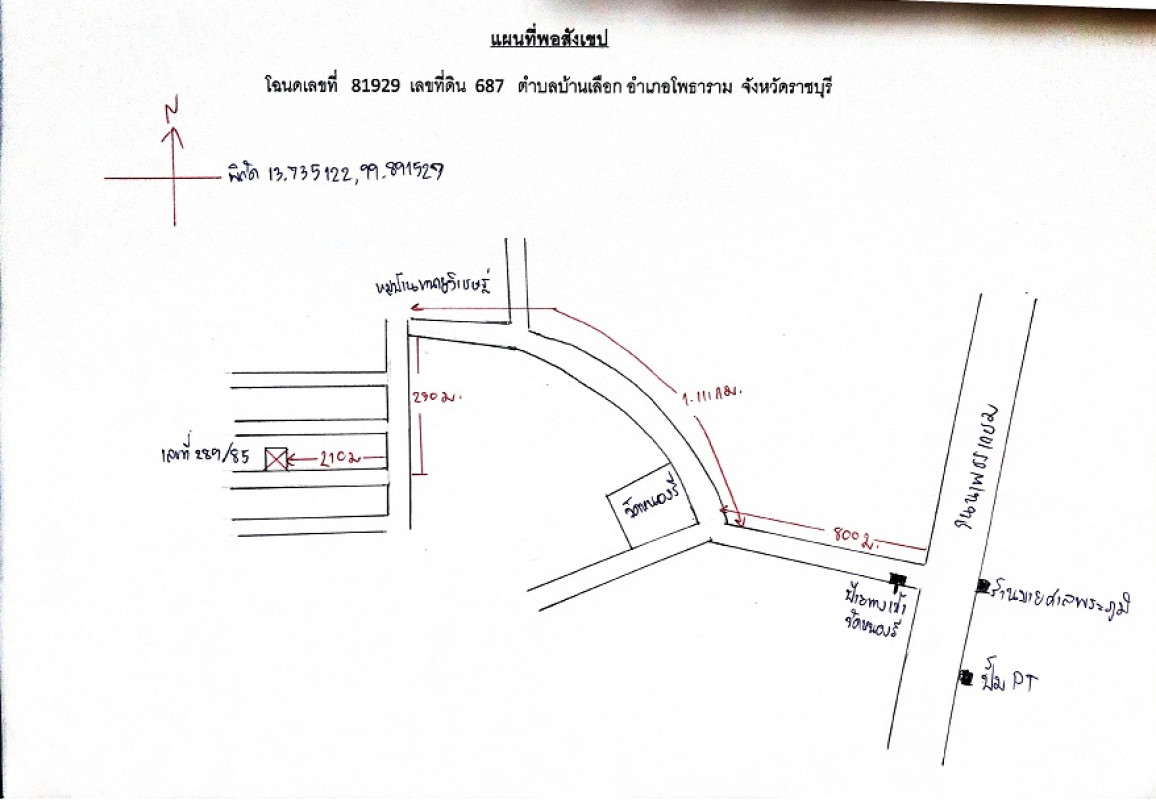 แผนที่พอสังเขป
โฉนดเลขที่ 81929 เลขที่ดิน 687 ตำบลบ้านเลือก อำเภอโพธาราม จังหวัดราชบุรี
N
พิกัด 13.735122,99.891529
หมู่บ้าน
290 ม.
1.111 กม.
เลขที่ 289/85
210 ม
วัดหนองรี
800 ม.
ถนนเพชรเกษม
ป้ายทางเข้า
วัดหนองรี
ร้านขายศาลพระภูมิ
ปั๊ม PT